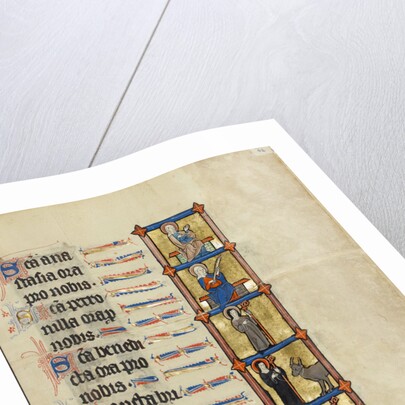 Sc̄a ana
stasia ora
pro nobis.
Sc̄a petro
nilla ora p̄
nobis.
Sc̄a bened̄
cta ora pro
nobis